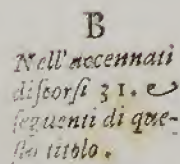 B
Nell'accennati
discorsi 31. &
seguenti di que-
sto titolo.